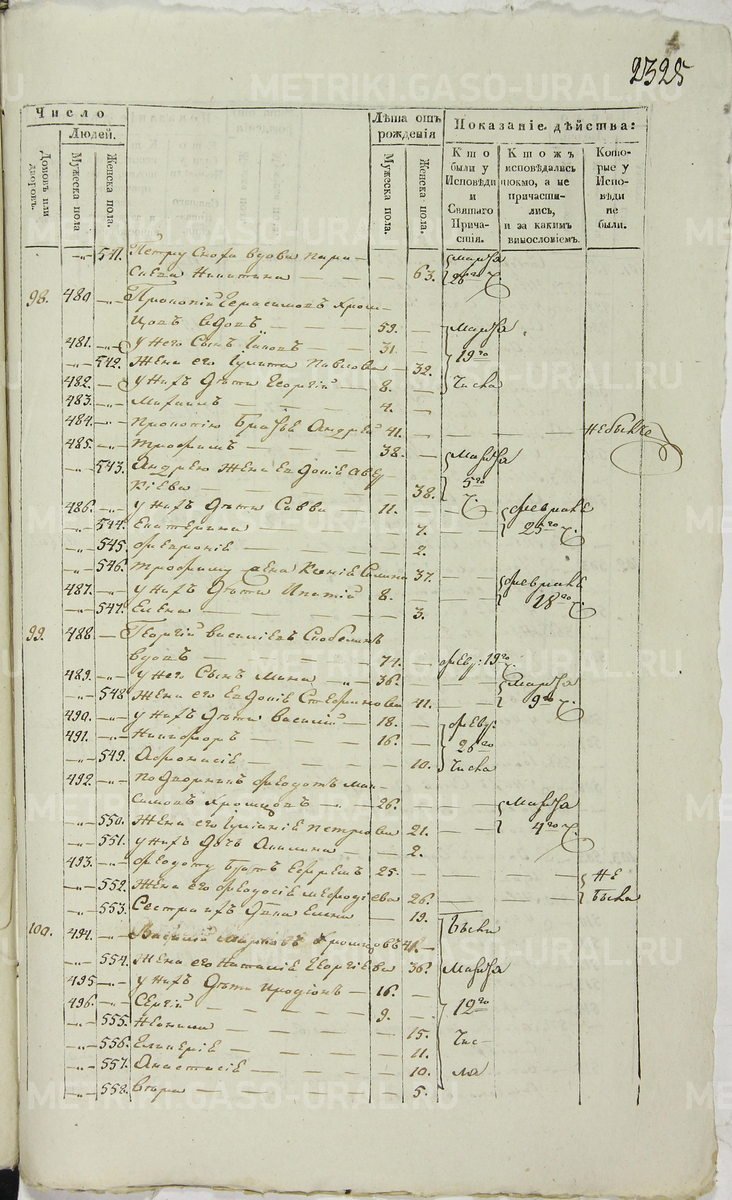 2325
Число
Людей.
Домовъ или дворовъ.
Мужеска пола
Женска пола.
Лѣта отъ рожденія
Мужеска пола.
Женска пола.
Показаніе дѣйства:
Кто были у Исповѣди и Святаго Причастія.
Ктожъ исповѣдались токмо, а не причастились, и за какимъ винословіемъ.
Которые у Исповѣди не были.
541. Петру сноха вдова Пара-
скева Никитина 63. Марта
98. 480 Прокопій Герасимовъ Хром-
цовъ вдовъ 59. Марта
481. у него сынъ 31. 19го
542. Жена его Павлова 32. числа
482 у нихъ дѣти Георгій 8.
483. Михаилъ 4.
484. Прокопію братъ Андрей 41. не былъ
485. Трофимъ 38. Марта
543. Андрею жена Евдокіе
38. 5го
486. у нихъ дѣти Савва 11. февраля
544. Екатерина 7. 25го ч.
545. Февроніе 2.
546. Трофиму жена Ксеніе 37. февраля
487. у нихъ дѣти Ипатій 8. 18го ч.
547. Елена 3.
99. 488. Георгій Василіевъ
вдовъ 71. февр: 19го ч.
489. у него сынъ Мина 36. Марта
548 Жена его Евдокіе 41. 9го ч.
490. у нихъ дѣти Василій 18. февр:
491. Никифоръ 16. 26го
549. Афонасіе 10. числа
492. Подворникъ Феодотъ Мак-
симовъ Хромцовъ 26. Марта
550. Жена его Іуліаніе Петрова 21. 4го ч.
551. у нихъ дочь Акилина 2.
493. Феодоту братъ Ефремъ 25 не
552. Жена его Феодосіе Мефодіева 26. были
553. Сестра ихъ Елена 19. были
100. 494. Василій Марковъ Хромцовъ 41.
554. Жена его Наталіе Георгіева 36. Марта
495 у нихъ дѣти Иродіонъ 16.
496. Сергій 9. 12го
555. 15. чис-
556. Гликеріе 11.
557. Анастасіе 10. ла
558. 5.
METRIKI.GASO-URAL.RU